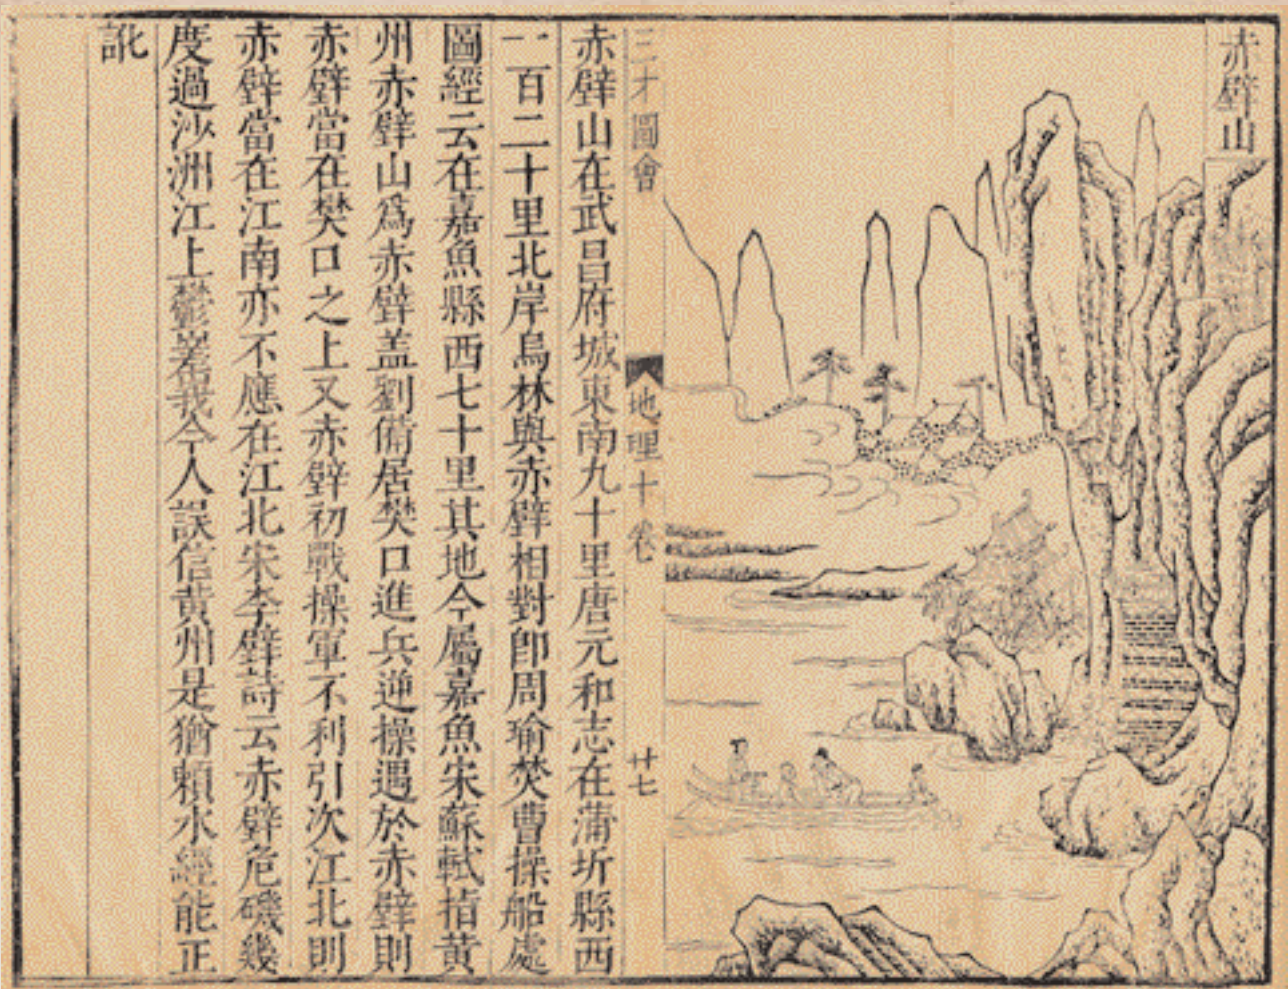 赤壁山
三才圖會
地理十卷
廿七
赤壁山在武昌府城東南九十里唐元和志在蒲圻縣西
一百二十里北岸烏林與赤壁相對卽周瑜焚曹操船處
圖經云在嘉魚縣西七十里其地今屬嘉魚宋蘇軾指黃
州赤壁山爲赤壁盖劉備居樊口進兵逆操遇於赤壁則
赤壁當在樊口之上又赤壁初戰操軍不利引次江北則
赤壁當在江南亦不應在江北宋李壁詩云赤壁危磯幾
度過沙洲江上鬱嵳峩今人誤信黃州是猶賴水經能正
訛